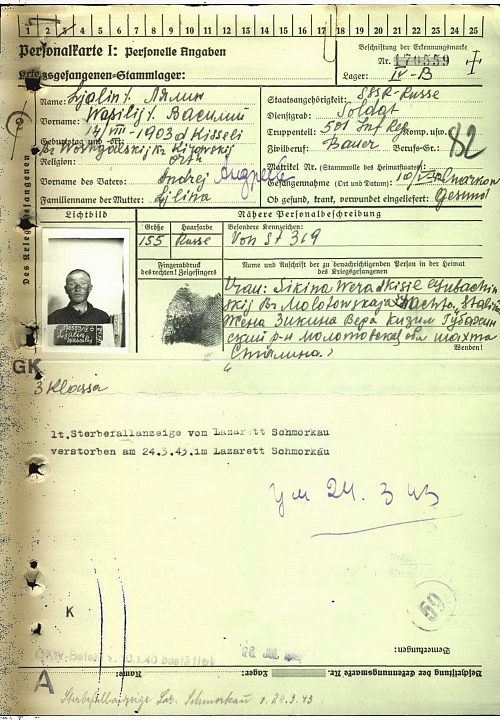 1 2 3 4 5 6 7 8 9 10 11 12 13 14 15 16 17 18 19 20 21 22 23 24 25
Personalkarte I: Personelle Angaben
Kriegsgefangenen-Stammlager:
Beschriftung der Erkennungsmarke
Nr. 170559
Lager: IV-B
Des Kriegsgefangenen
Name: Ljalin Лялин
Vorname: Wasilij Василий
Geburtstag und -ort: 14/VIII-1903 d Kisseli
Religion: Orth
Vorname des Vaters: Andrej Андрей
Familienname der Mutter: Iljina
Staatsangehörigkeit: SSSR-Russe
Dienstgrad: Soldat
Truppenteil: 501 Inf Reg. Komp. usw.
Zivilberuf: Bauer Berufs-Gr.: 82
Matrikel Nr. (Stammrolle des Heimatstaates):
Gefangennahme (Ort und Datum): Charkow
Ob gesund, krank, verwundet eingeliefert: Gesund
Lichtbild
Nähere Personalbeschreibung
Größe Haarfarbe Besondere Kennzeichen:
155 Russe Von St 319
Fingerabdruck
des rechten! Zeigefingers
Name und Anschrift der zu benachrichtigenden Person in der Heimat
des Kriegsgefangenen
Sikina Wera
Kr Molotowskaja Schachta, Stalina
Жена Зикина Вера Кизил Губахин
ский р-н Молотовской обл шахта
Сталина.
Wenden!
Ljalin
Wassilij
GK
3 Klassa
lt.Sterbefallanzeige vom Lazarett Schmorkau
verstorben am 24.3.43.im Lazarett Schmorkau
Ум 24. 3 43
59
K
Bemerkungen:
Beschriftung der Erkennungsmarke Nr. Lager: Name:
A
Sterbefallanzeige Laz. Schmorkau v. 24.3.43